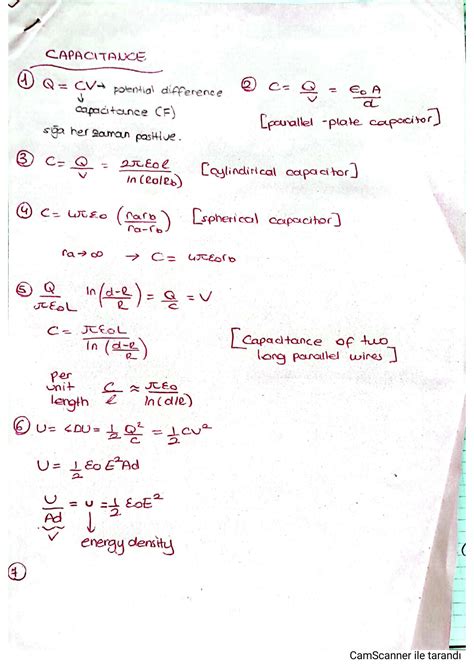 CAPACITANCE
① Q = CV → potential difference
↓
capacitance (F)
sığa her zaman positive.
② C = Q/V = ε₀A/d
[parallel-plate capacitor]
③ C = Q/V = 2πε₀l/ln(Ra/Rb) [cylindirical capacitor]
④ C = 4πε₀ (ra rb/ra-rb) [spherical capacitor]
ra → ∞ → C = 4πε₀rb
⑤ Q/πε₀L ln(d-R/R) = Q/C = V
C = πε₀L/ln(d-R/R)
[Capacitance of two
long parallel wires]
per
unit
length C/l ≈ πε₀/ln(d/R)
⑥ U = <DU = 1/2 Q²/C = 1/2 CV²
U = 1/2 ε₀E²Ad
U/Ad = u = 1/2 ε₀E²
V
↓
energy density
⑦
CamScanner ile tarandı